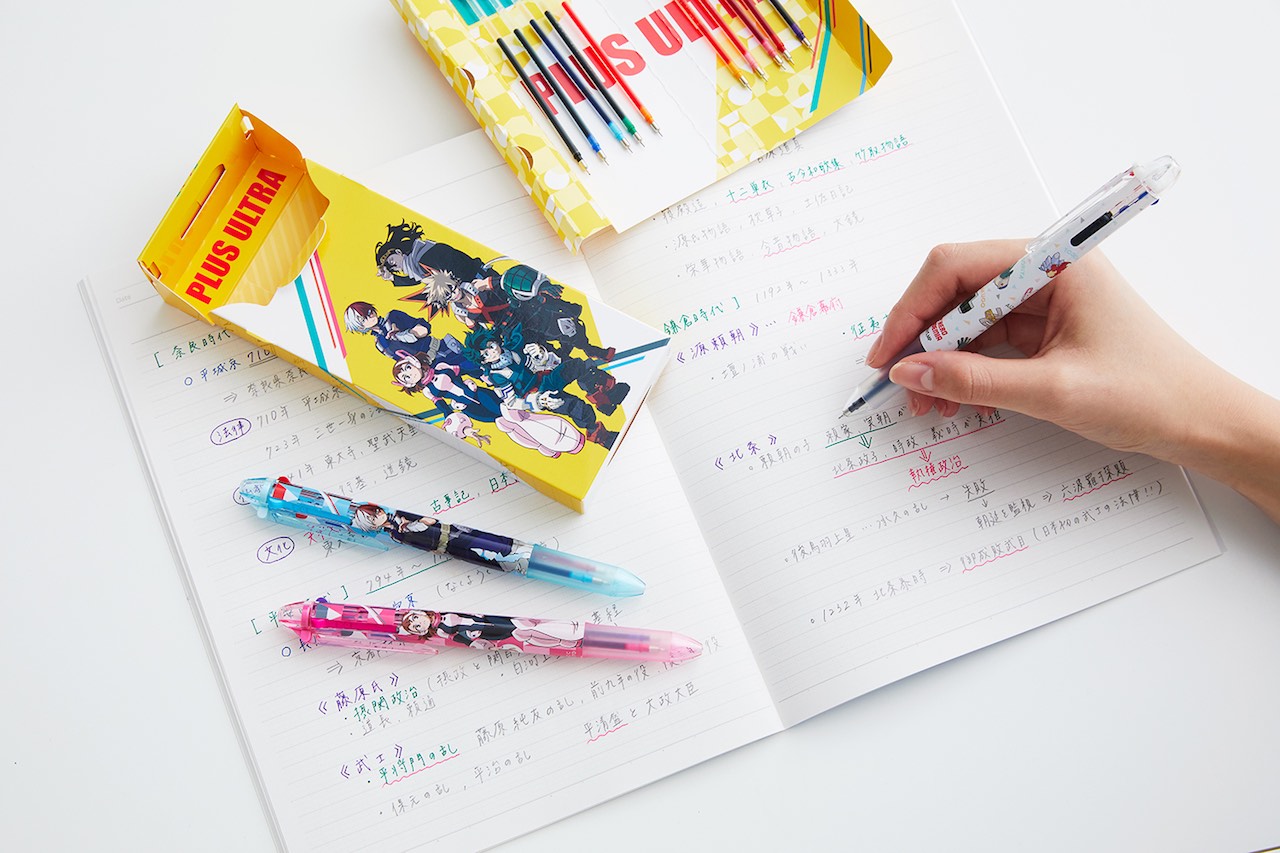 PLUS ULTRA
PLUS ULTRA
[奈良時代
○平城京 710
⇒ 奈良県奈良
法律
710年 平城京
723年 三世一身の法
東大寺、聖武天皇
行基、道鏡
古事記、日本
文化
794年〜
(なくよう
⇒ 京都
《藤原氏》(摂政と関白
・摂関政治
・道長、頼通
・白河上
基経
《武士》
・平将門の乱 藤原純友の乱、前九年の役、
平清盛と太政大臣
・保元の乱、平治の乱
・十二単衣、古今和歌集、竹取物語
・源氏物語、枕草子、土佐日記
・栄華物語 今昔物語、大鏡
鎌倉時代] 1192年〜1333年
《源頼朝》… 鎌倉幕府
征夷
・壇ノ浦の戦い
《北条》
・頼朝の子 頼家、実朝が
北条政子、時政、義時が実権
執権政治
・後鳥羽上皇…承久の乱 → 失敗
朝廷を監視 ⇒ 六波羅探題
○1232年 北条泰時 ⇒ 御成敗式目(日本初の武士の法律!!)